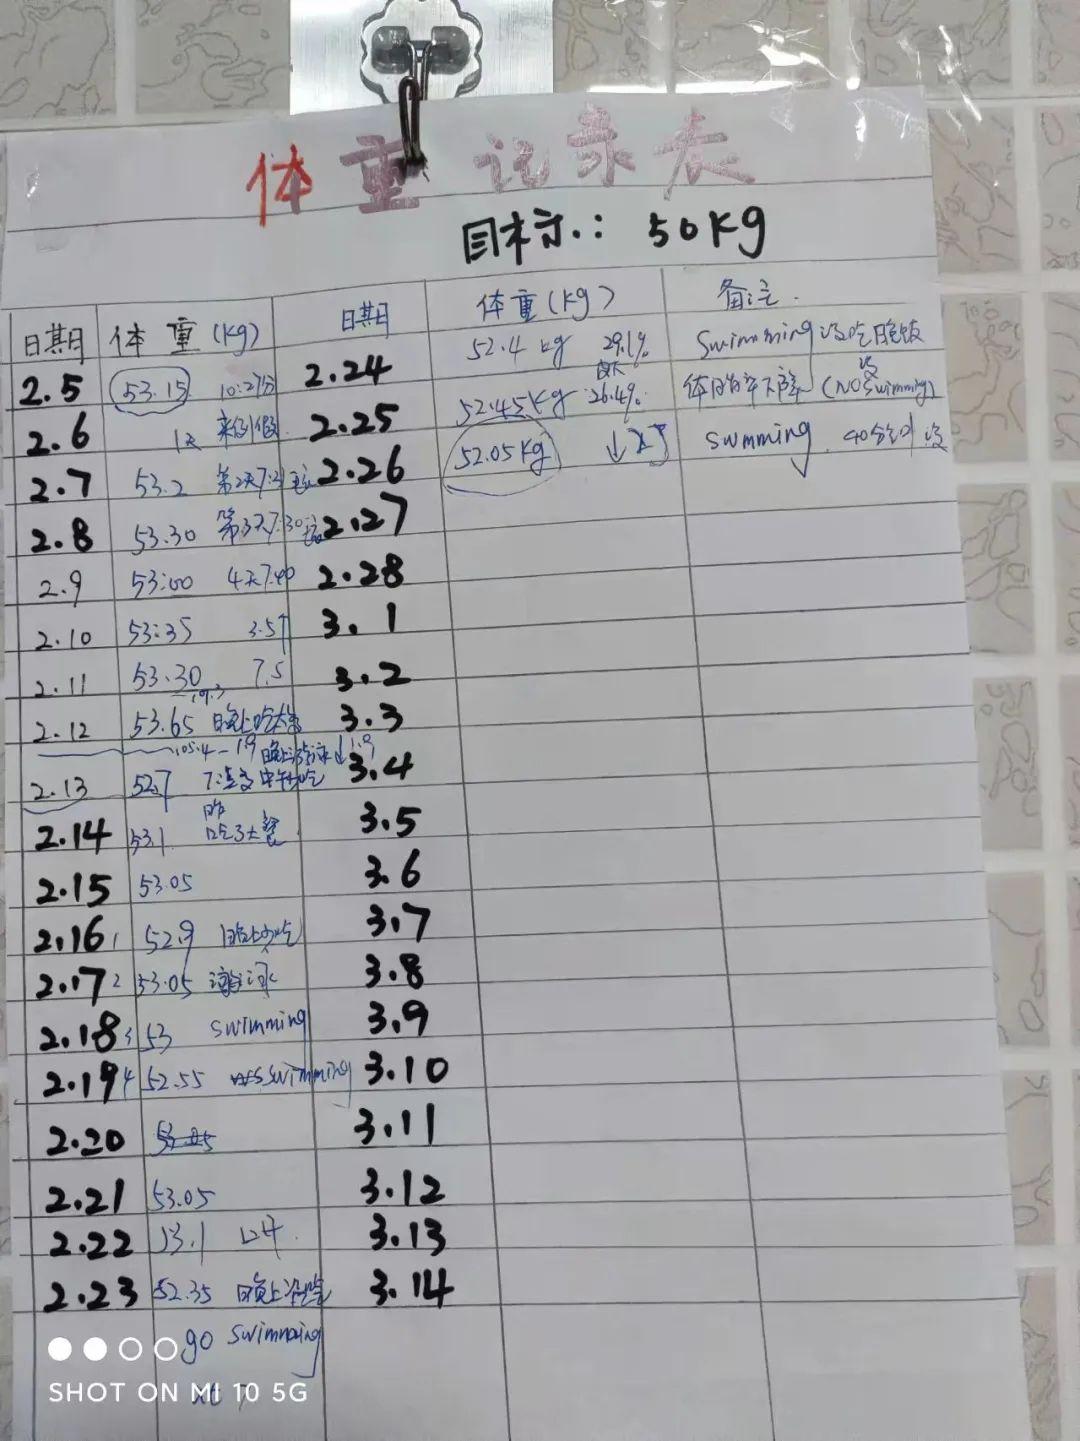 体重记录表
目标.: 50Kg
日期 体重(kg) 日期 体重(kg) 备注.
2.5 53.15 10:27分 2.24 52.4 kg 29.1% Swimming 没吃晚饭
2.6 来例假 2.25 52.45Kg 26.4% 体脂率下降 (NO Swimming)
2.7 53.2 第2天7:2 2.26 52.05Kg ↓ swmming 40分钟 没
2.8 53.30 第3天7:30 2.27
2.9 53:00 4天7.40 2.28
2.10 53:35 3.1
2.11 53.30 7.5 3.2
2.12 53.65 晚上吃 3.3
105.4-1.9 晚上游泳↓1.9
2.13 52.7 中午吃 3.4
昨
2.14 53.1 吃了大餐 3.5
2.15 53.05 3.6
2.16 1 52.9 晚上少吃 3.7
2.17 2 53.05 游泳 3.8
2.18 3 53 swimming 3.9
2.19 4 52.55 swimming 3.10
2.20 3.11
2.21 53.05 3.12
2.22 53.1 3.13
2.23 52.35 晚上没吃 3.14
go swimming
at 7
SHOT ON MI 10 5G